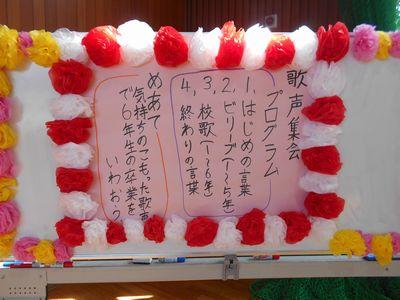 歌声集会
プログラム
1、はじめの言葉
2、ビリーブ(1~5年)
3、校歌(1~6年)
4、終わりの言葉
めあて
気持ちのこもった歌声
で6年生の卒業を
いわおう